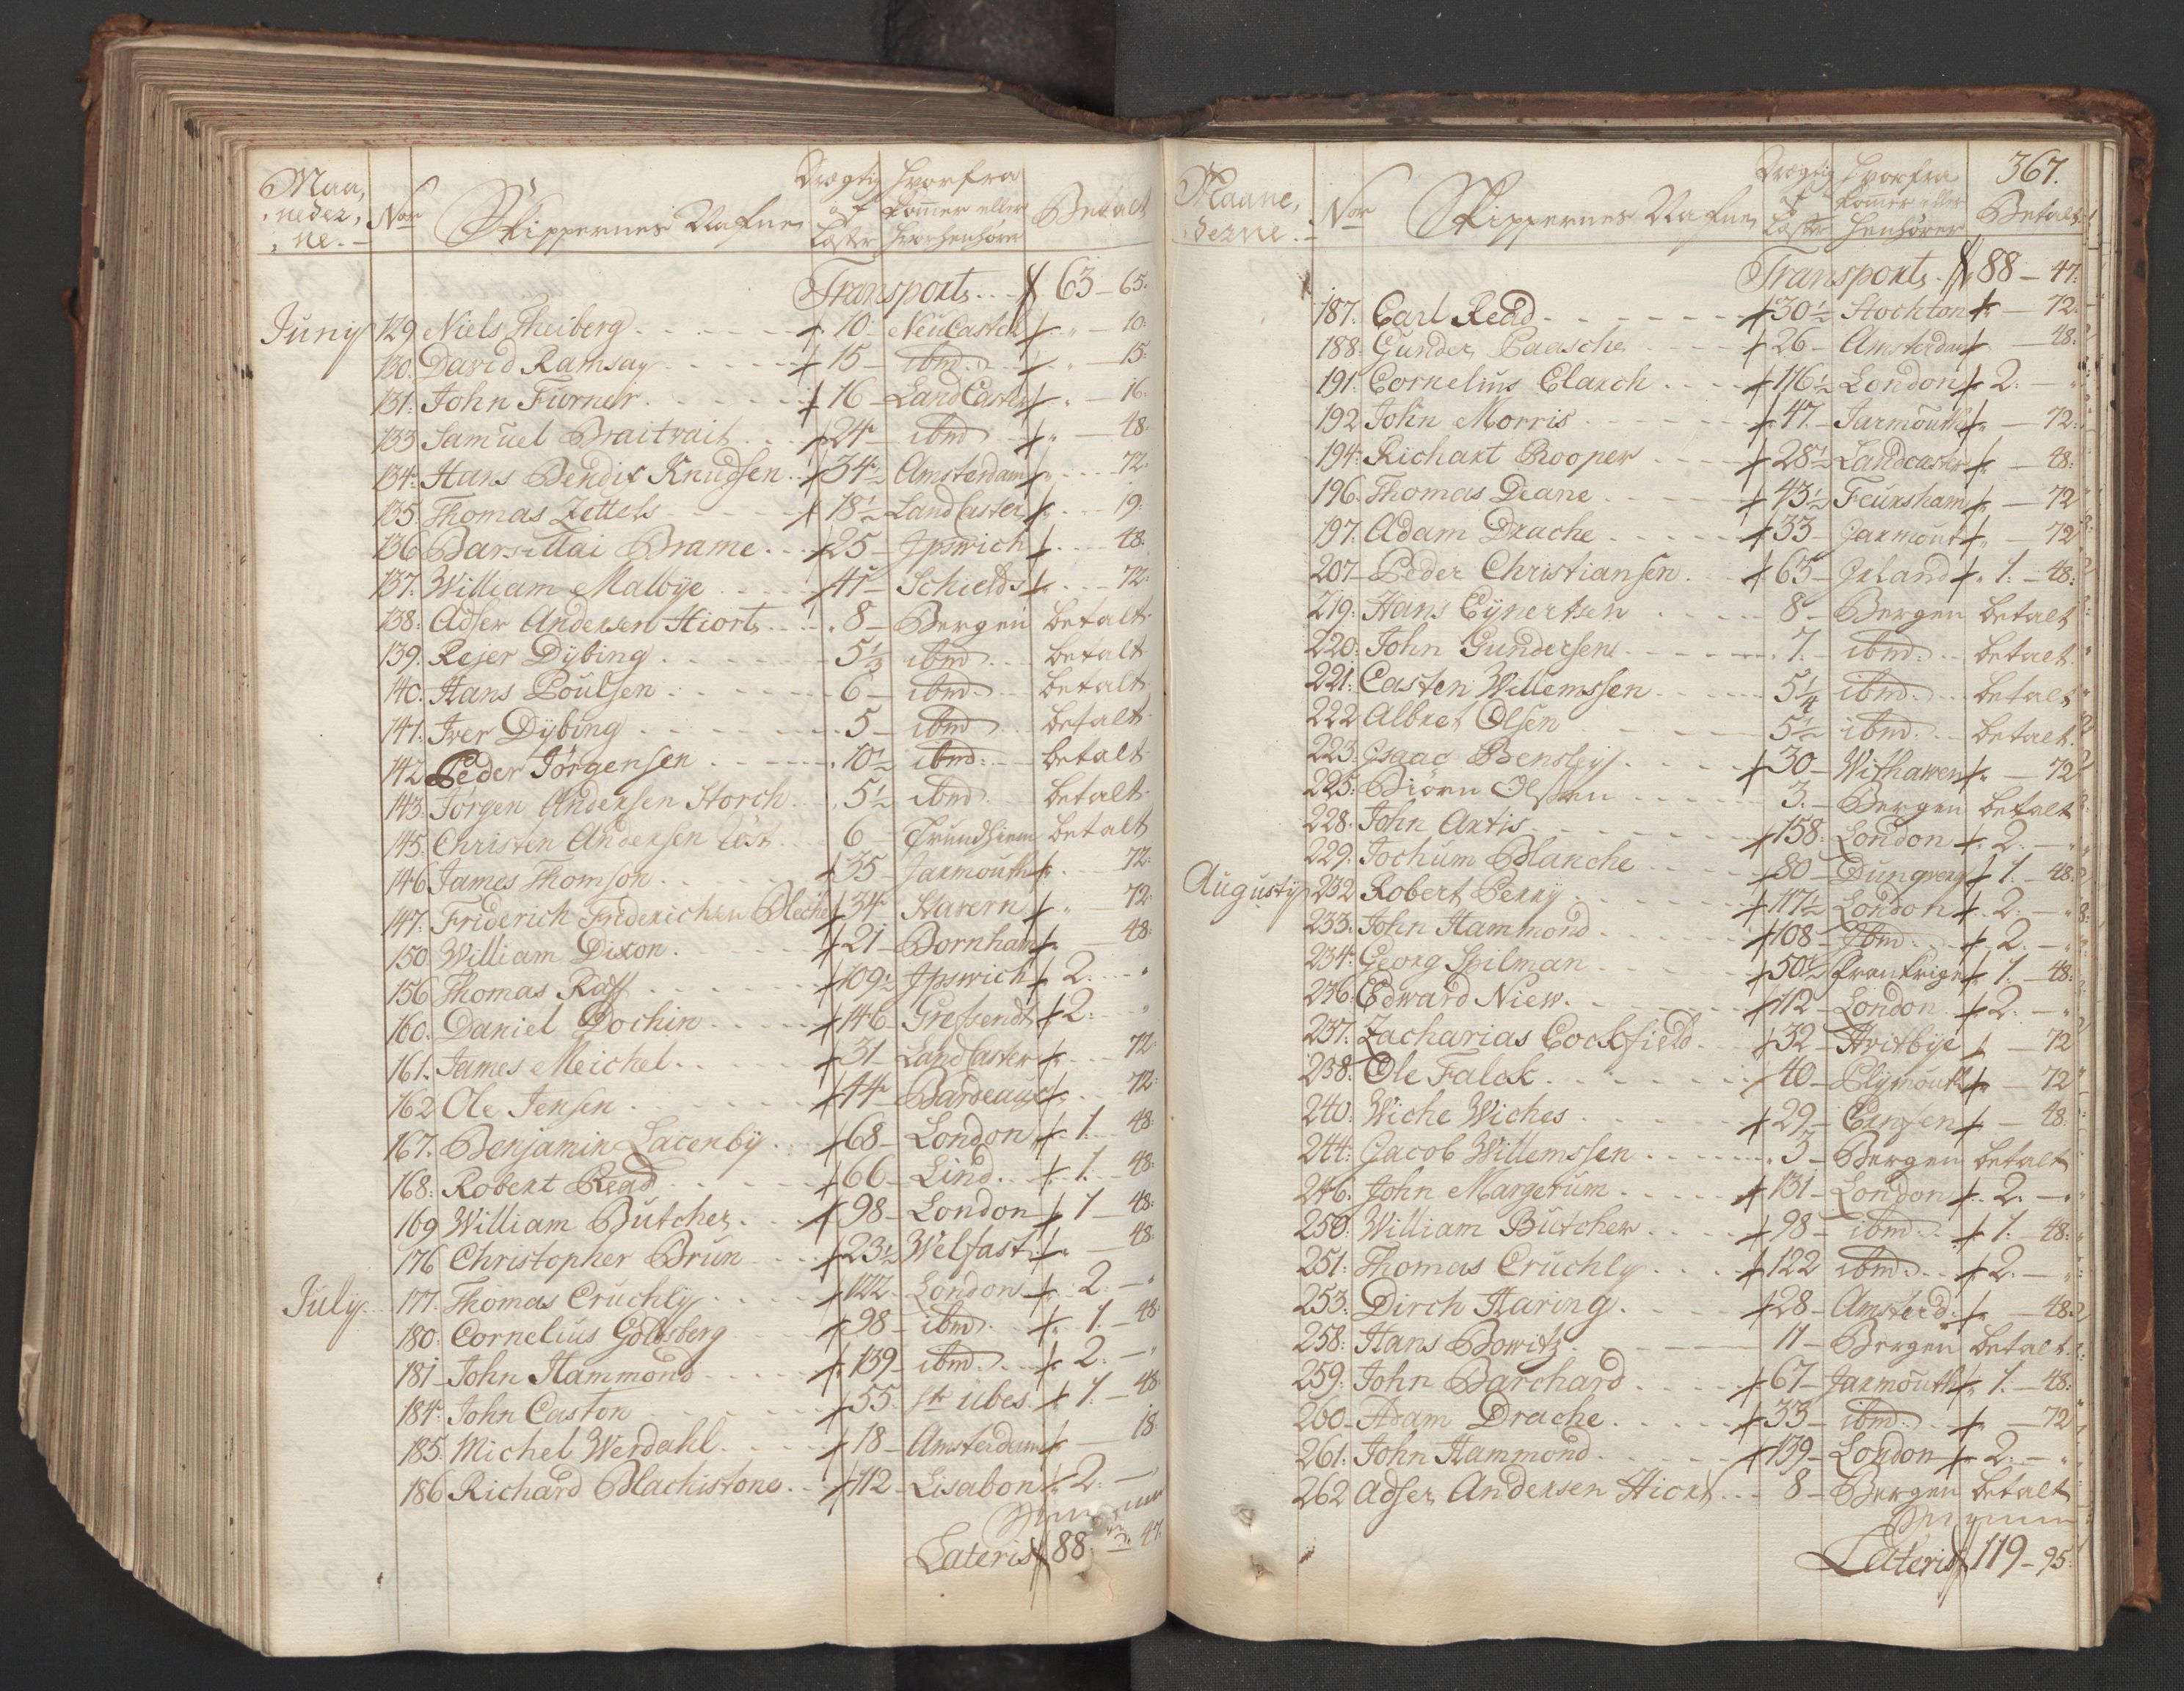 Maa,
neder,
ne. Nor Skippernes Nafne Drægtig af Læster Hvorfra kommer eller hvorhen hører Betalt
Transport 63 - 65:
Junij 129 Niels Theiberg 10 - NeuCastel " - 10:
130. David Ramsay 15 - ibm " - 15:
131. John Furner 16 - LandCaster " - 16:
133 Samuel Braitvait 24 - ibm " - 48:
134. Hans Bendix Knudsen 34½ Amsterdam " - 72:
135. Thomas Zettels 18½ LandCaster 19:
136 Barsillai Brame 25 - Ipswich 48:
137. William Malbye 41 - Schields 72:
138. Adser Andersen Hiort 8 - Bergen betalt
139. Rejer Dybing 5½ ibm betalt
140. Hans Poulsen 6 - ibm betalt
141. Iver Dybing 5 - ibm betalt
142 Peder Jörgensen 10½ ibm betalt
143. Jörgen Andersen Storch 5½ ibm betalt
145. Christen Andersen Röst 6 - Trundhiem betalt
146 James Thomson 35 - Jarmouth 72:
147. Friderich Friderichsen Bleche 34 - Stavern " 72:
150 William Dixon 21 - Bornham 48:
156 Thomas Raff 109½ Ipswich 2. "
160. Daniel Dochin 146 - Grefsendt 2. "
161. James Meichel 31 - LandCaster 72:
162 Ole Jensen 44 - Bardeaux 72:
167. Benjamin Lacenby 68 - London 1. 48:
168. Robert Read 66 - Lind. 1. 48:
169 William Butcher 98 - London 1 - 48:
176 Christopher Brun 23½ Welfast " - 48:
July 177. Thomas Cruchly 122 - London 2. - "
180. Cornelius Goldsberg 98 - ibm 1. - 48:
181 - John Hammond 139 - ibm 2. - "
184. John Caston 55. St Ubes. 1. - 48
185. Michel Werdahl 18 - Amsterdam - 18
186 Richard Blachistone 112 - Lisabon 2. - "
Lateris 88. 47.
367.
Maane,
derne. Nor Skippernes Nafne Drægtig af Læster Hvorfra kommer eller henhører Betalt
Transport 88 - 47.
187. Carl Read 30½ Stockton - 72:
188. Gunder Paasche 26 - Amsterdam - 48:
191. Cornelius Clarch 116½ London 2. - "
192 John Morris 47. - Jarmouth - 72:
194. Richart Rooper 28½ Landcaster - 48:
196. Thomas Deane 43½ Feursham - 72
197. Adam Drache 33 - Jarmout - 72
207 - Peder Christiansen 65 - Irland 1. - 48:
219. Hans Eynertsen 8 - Bergen betalt
220. John Gundersen 7. - ibm betalt.
221. Casten Willemssen 5¼ ibm betalt
222 Albret Olsen 5½ ibm betalt.
223. Isaac Bensley 30 - Withawen - 72
225. Biörn Olsen 3. - Bergen betalt
228. John Artis 158. London 2. - "
229. Jochum Blanche 80 - Dungveng 1. - 48:
Augustij 232 Robert Perry 117½ London 2. - "
233. John Hammond 108 - Ibm 2. - "
234. Georg Spilman 50½ Frankrige 1. - 48:
236. Edward Niew. 112 - London 2. - "
237. Zacharias Cockfield 32 - Hvitbye - 72
238. Ole Falck 40 - Plymouth - 72
240. Wiche Wiches 29 - Embden - 48:
244. Jacob Willemssen 3 - Bergen betalt
246. John Margerum 131 - London 2. - "
250. William Butcher 98 - ibm 1. - 48:
251. Thomas Cruchly 122 ibm 2. - "
253. Dirch Haring 28 - Amsterd. - 48:
258. Hans Bowitz 11 - Bergen betalt.
259. John Barchard 67 - Jarmouth 1. - 48:
260 - Adam Drache 33 - ibm - 72
261. John Hammond 139 - London 2. - "
262 Adser Andersen Hiort 8 - Bergen betalt
Lateris 119 - 95: